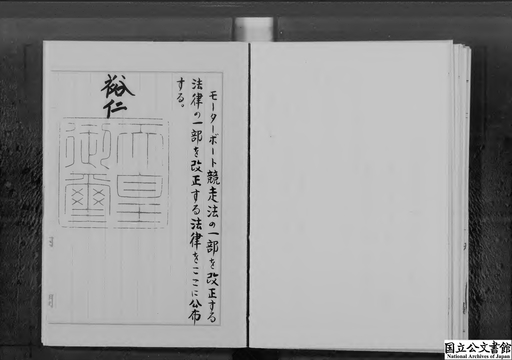 モーターボート競走法の一部を改正する
法律の一部を改正する法律をここに公布
する。
裕仁
天皇
御璽
国立公文書館
National Archives of Japan